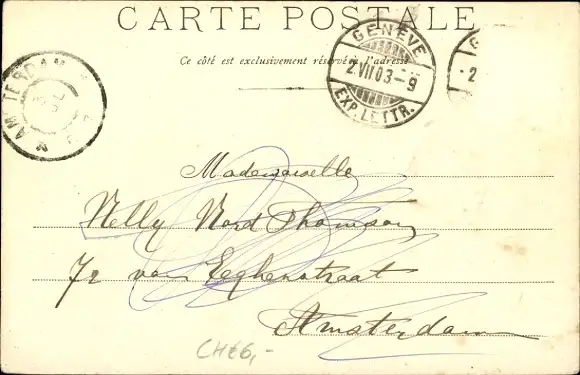 CARTE POSTALE
Ce côté est exclusivement réservé à l'adresse
GENÈVE
2.VII.03-9
EXP. LETTR.
G
2
AMSTERDAM
Mademoiselle
Nelly Nord Thomson
72 van Eeghenstraat
Amsterdam
CH£6,-